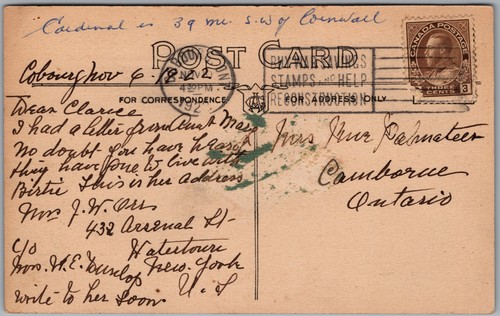 Cardinal is 39 mi. S.W of Cornwall
POST CARD
Cobourg Nov 6, 1922
NOV
4 30 PM
192
STAMPS AND HELP
CANADA POSTAGE
3 THREE CENTS 3
FOR CORRESPONDENCE
FOR ADDRESS ONLY
Dear Clarice
I had a letter from Aunt Mary
No doubt you have heard
they have gone to live with
Birtie This is her address
Mrs J. W. Orr
432 Arsenal St
c/o Watertown
Mrs. H. E. Dunlop New York
U.S
write to her soon
Mrs Palmateer
Camborne
Ontario